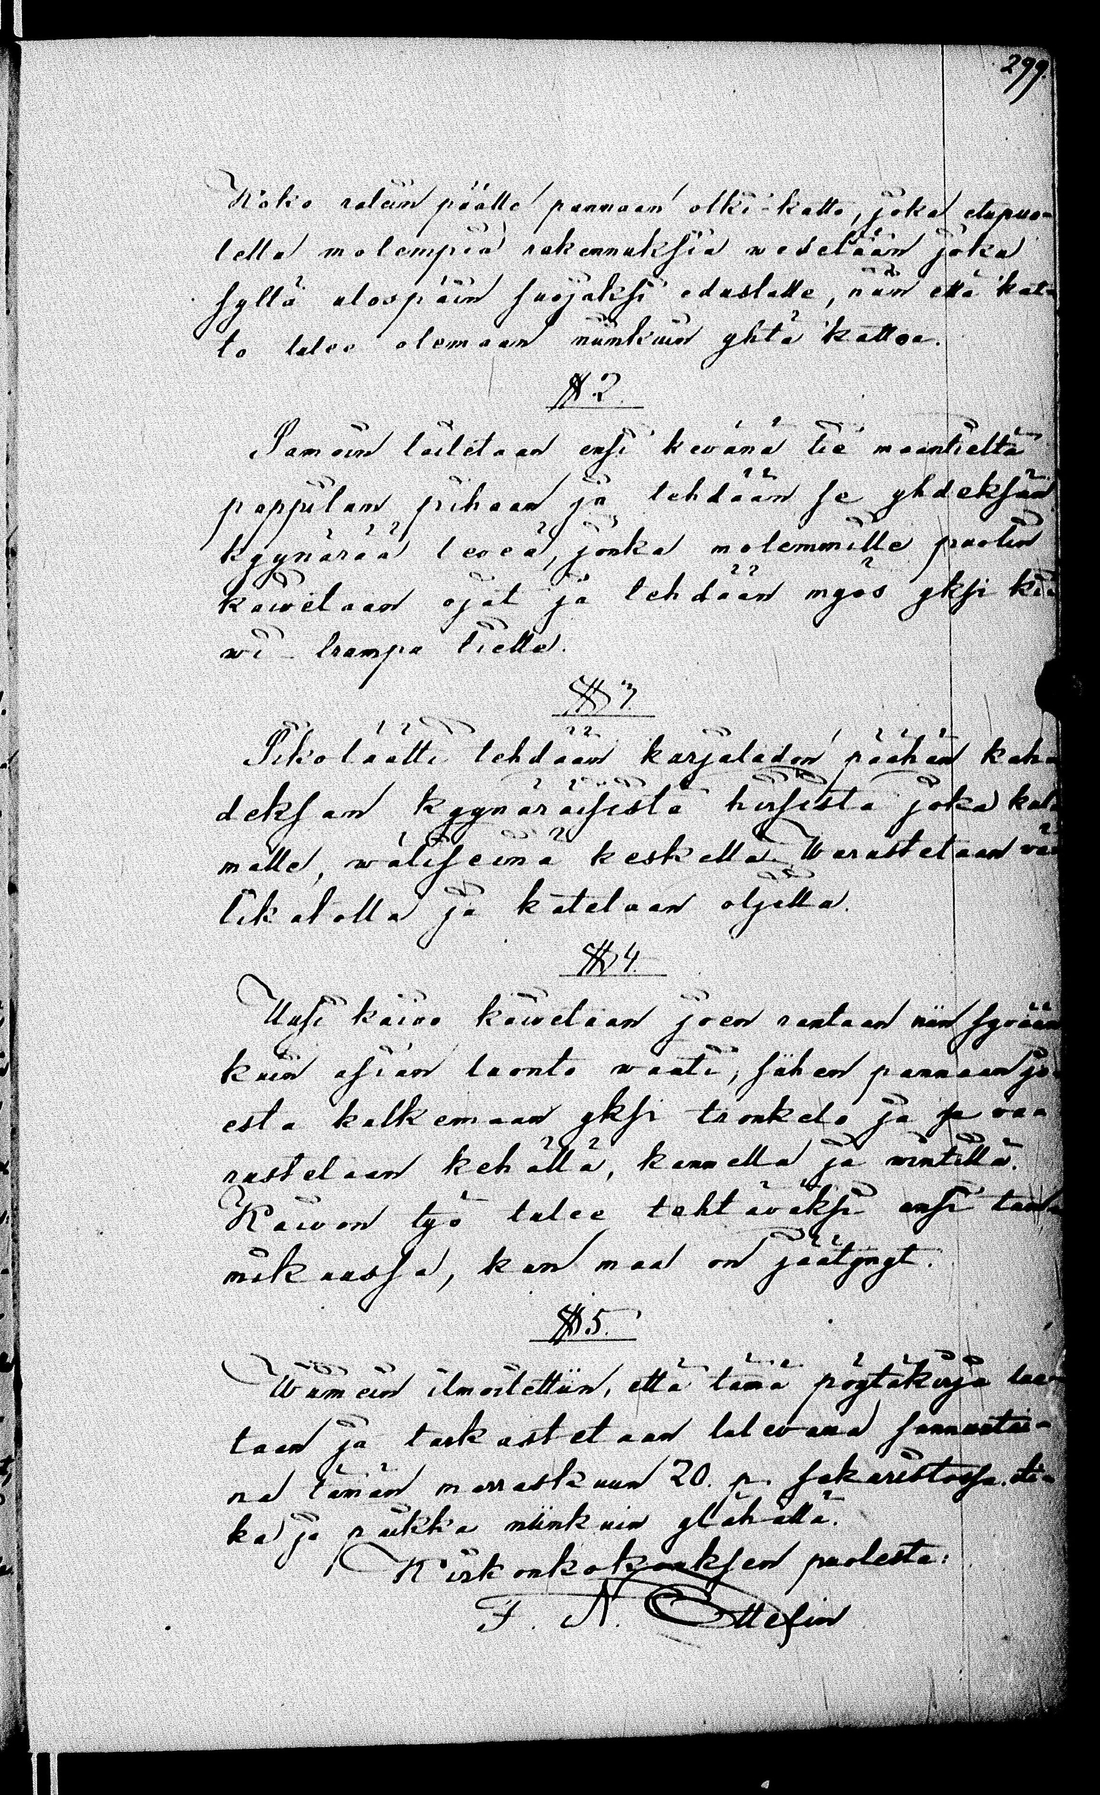 299.
Koko rativin päälle pannaan olki-katto, joka etupuo-
lella molempia rakennuksia wedetään joka
syllä ulospäin suojaksi edustalle, niin että kat-
to tulee olemaan niinkuin yhtä kattoa.
§ 2.
Samoin laitetaan ensi kevänä tie maantieltä
pappilan pihaan ja tehdään se yhdeksän
kyynärää leveä, jonka molemmille puolin
kaivetaan ojat ja tehdään myös yksi ki
wi-trumpa tielle.
§ 3.
Sikolätti tehdään karjaladon päähän kah
deksan kyynäräisistä hirsistä joka kal
malle, wäliseinä keskellä. Warustetaan
likatolla ja katetaan oljilla.
§ 4.
Uusi kaivo kaivetaan joen rantaan niin syvään
kuin asian luonto waatii, siihen pannaan jo
esta kulkemaan yksi tronkelo ja se vaa
rustetaan kehällä, kannella ja wintillä.
Kaivon työ tulee tehtäväksi ensi tam
mikuussa, kun maa on jäätynyt.
§ 5.
Wiimein ilmoitettiin, että tämä pöytäkirja lue
taan ja tarkastetaan tulevana sunnuntai-
na tämän marraskuun 20. p. sakaristossa. Ai-
ka ja paikka niinkuin ylähällä.
Kirkonkokouksen puolesta:
F. N. Ettesin